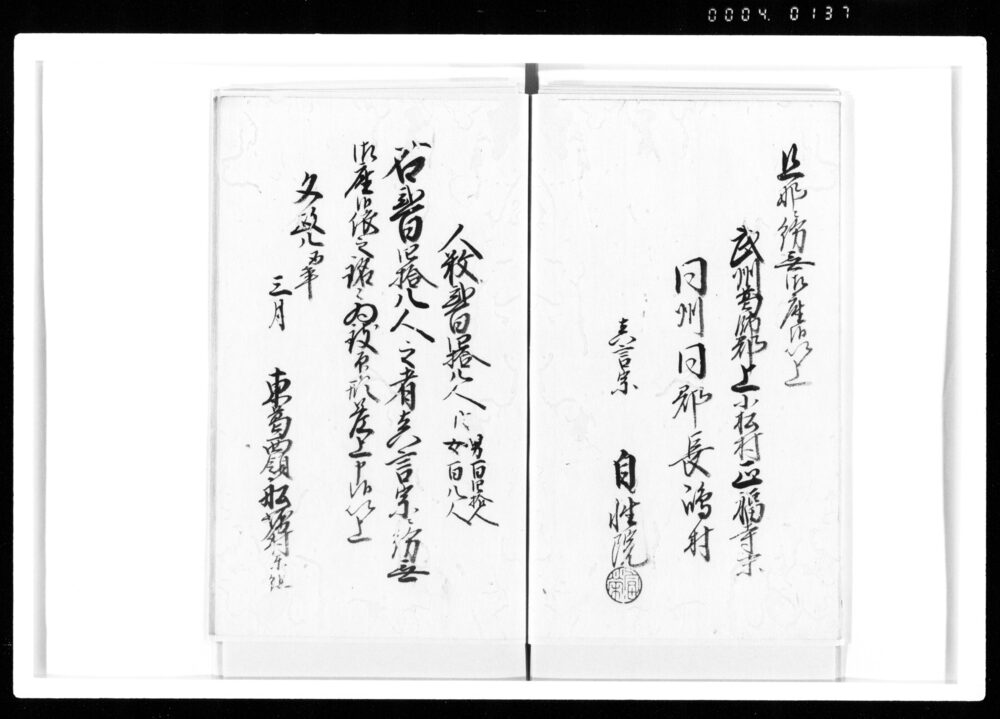 0004. 0137
旦那紛無御座候以上
武州葛飾郡上小松村正福寺末
同州同郡長嶋村
真言宗 自性院
人数弐百四拾八人 内 男百四拾人
女百八人
右弐百四拾八人之者真言宗ニ紛無
御座候依之銘々為致印形差上申候以上
文政八酉年
三月
東葛西領船堀村